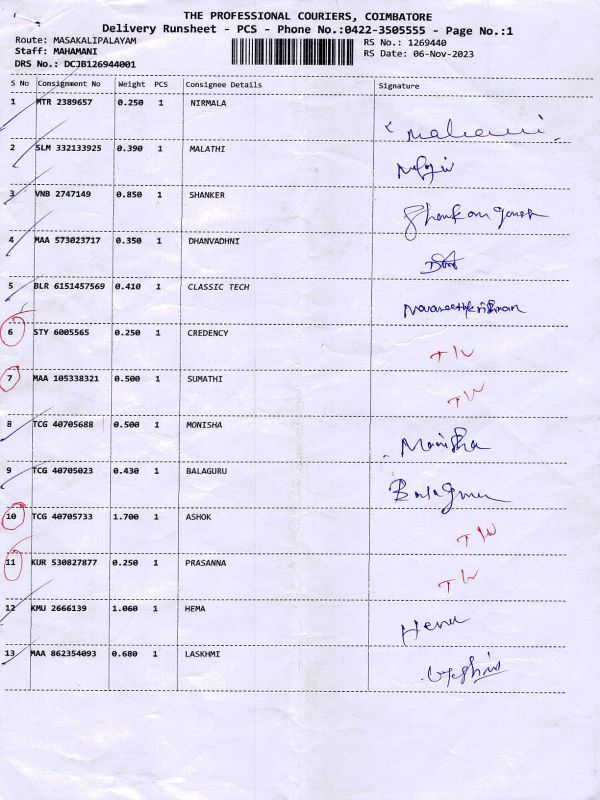 THE PROFESSIONAL COURIERS, COIMBATORE
Delivery Runsheet - PCS - Phone No.:0422-3505555 - Page No.:1
Route: MASAKALIPALAYAM
Staff: MAHAMANI
DRS No.: DCJB126944001
RS No.: 1269440
RS Date: 06-Nov-2023
S No Consignment No Weight PCS Consignee Details Signature
1 MTR 2389657 0.250 1 NIRMALA
2 SLM 332133925 0.390 1 MALATHI
3 VNB 2747149 0.850 1 SHANKER
4 MAA 573023717 0.350 1 DHANVADHNI
5 BLR 6151457569 0.410 1 CLASSIC TECH
6 STY 6005565 0.250 1 CREDENCY
7 MAA 105338321 0.500 1 SUMATHI
8 TCG 40705688 0.500 1 MONISHA Monisha
9 TCG 40705023 0.430 1 BALAGURU
10 TCG 40705733 1.700 1 ASHOK
11 KUR 530827877 0.250 1 PRASANNA
12 KMU 2666139 1.060 1 HEMA Hema
13 MAA 862354093 0.680 1 LASKHMI